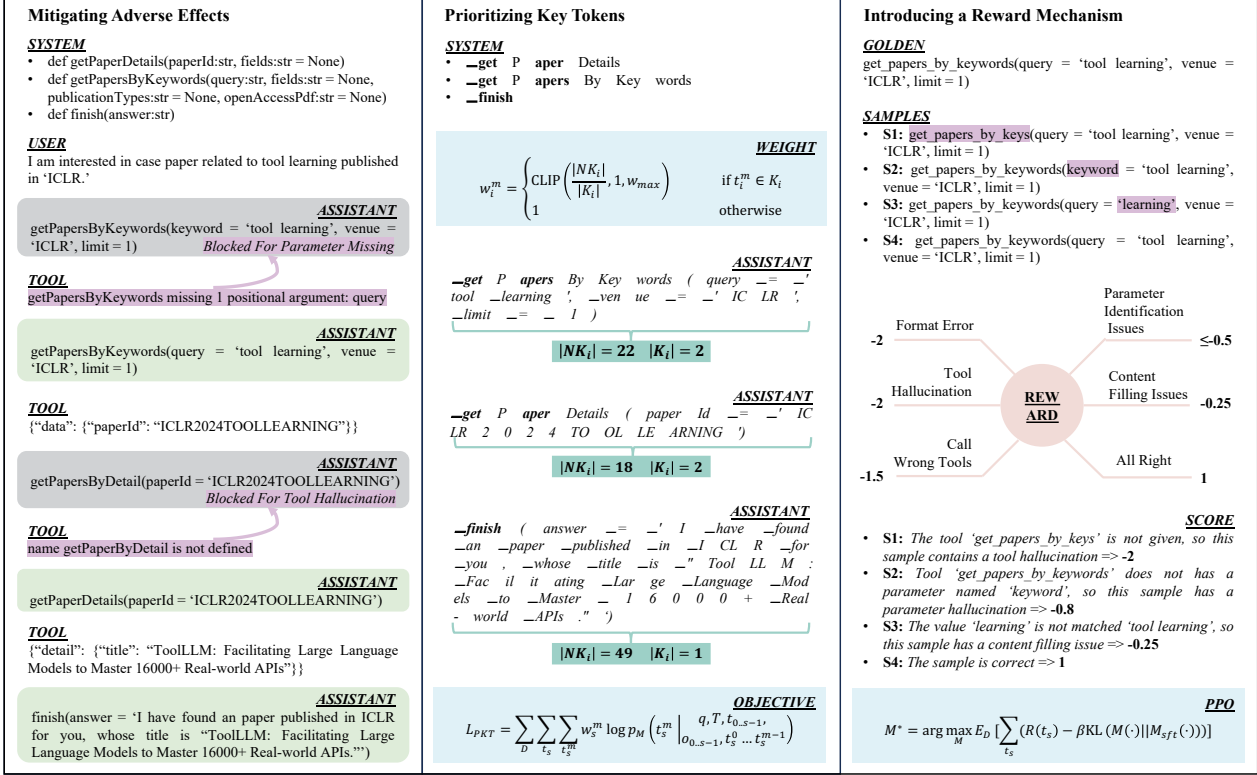 Mitigating Adverse Effects
SYSTEM
• def getPaperDetails(paperId:str, fields:str = None)
• def getPapersByKeywords(query:str, fields:str = None,
publicationTypes:str = None, openAccessPdf:str = None)
• def finish(answer:str)
USER
I am interested in case paper related to tool learning published
in ‘ICLR.’
ASSISTANT
getPapersByKeywords(keyword = ‘tool learning’, venue =
‘ICLR’, limit = 1) Blocked For Parameter Missing
TOOL
getPapersByKeywords missing 1 positional argument: query
ASSISTANT
getPapersByKeywords(query = ‘tool learning’, venue =
‘ICLR’, limit = 1)
TOOL
{“data”: {“paperId”: “ICLR2024TOOLLEARNING”}}
ASSISTANT
getPapersByDetail(paperId = ‘ICLR2024TOOLLEARNING’)
Blocked For Tool Hallucination
TOOL
name getPaperByDetail is not defined
ASSISTANT
getPaperDetails(paperId = ‘ICLR2024TOOLLEARNING’)
TOOL
{“detail”: {“title”: “ToolLLM: Facilitating Large Language
Models to Master 16000+ Real-world APIs”}}
ASSISTANT
finish(answer = ‘I have found an paper published in ICLR
for you, whose title is “ToolLLM: Facilitating Large
Language Models to Master 16000+ Real-world APIs.”’)
Prioritizing Key Tokens
SYSTEM
• ▁get P aper Details
• ▁get P apers By Key words
• ▁finish
WEIGHT
w_i^m = { CLIP(|NK_i| / |K_i|, 1, w_max) if t_i^m ∈ K_i
1 otherwise
ASSISTANT
▁get P apers By Key words ( query ▁= ▁'
tool ▁learning ', ▁ven ue ▁= ▁' IC LR ',
▁limit ▁= ▁ 1 )
|NK_i| = 22 |K_i| = 2
ASSISTANT
▁get P aper Details ( paper Id ▁= ▁' IC
LR 2 0 2 4 TO OL LE ARNING ')
|NK_i| = 18 |K_i| = 2
ASSISTANT
▁finish ( answer ▁= ▁' I ▁have ▁found
▁an ▁paper ▁published ▁in ▁I CL R ▁for
▁you , ▁whose ▁title ▁is ▁" Tool LL M :
▁Fac il it ating ▁Lar ge ▁Language ▁Mod
els ▁to ▁Master ▁ 1 6 0 0 0 + ▁Real
- world ▁APIs ." ')
|NK_i| = 49 |K_i| = 1
OBJECTIVE
L_PKT = ∑_D ∑_{t_s} ∑_{t_s^m} w_s^m log p_M (t_s^m | q, T, t_{0..s−1}, o_{0..s−1}, t_s^0 … t_s^{m−1})
Introducing a Reward Mechanism
GOLDEN
get_papers_by_keywords(query = ‘tool learning’, venue =
‘ICLR’, limit = 1)
SAMPLES
• S1: get_papers_by_keys(query = ‘tool learning’, venue =
‘ICLR’, limit = 1)
• S2: get_papers_by_keywords(keyword = ‘tool learning’,
venue = ‘ICLR’, limit = 1)
• S3: get_papers_by_keywords(query = ‘learning’, venue =
‘ICLR’, limit = 1)
• S4: get_papers_by_keywords(query = ‘tool learning’,
venue = ‘ICLR’, limit = 1)
Format Error
-2
Tool
Hallucination
-2
Call
Wrong Tools
-1.5
REW
ARD
Parameter
Identification
Issues
≤-0.5
Content
Filling Issues
-0.25
All Right
1
SCORE
• S1: The tool ‘get_papers_by_keys’ is not given, so this
sample contains a tool hallucination => -2
• S2: Tool ‘get_papers_by_keywords’ does not has a
parameter named ‘keyword’, so this sample has a
parameter hallucination => -0.8
• S3: The value ‘learning’ is not matched ‘tool learning’, so
this sample has a content filling issue => -0.25
• S4: The sample is correct => 1
PPO
M* = arg max_M E_D [∑_{t_s} (R(t_s) − βKL (M(·)||M_sft(·)))]